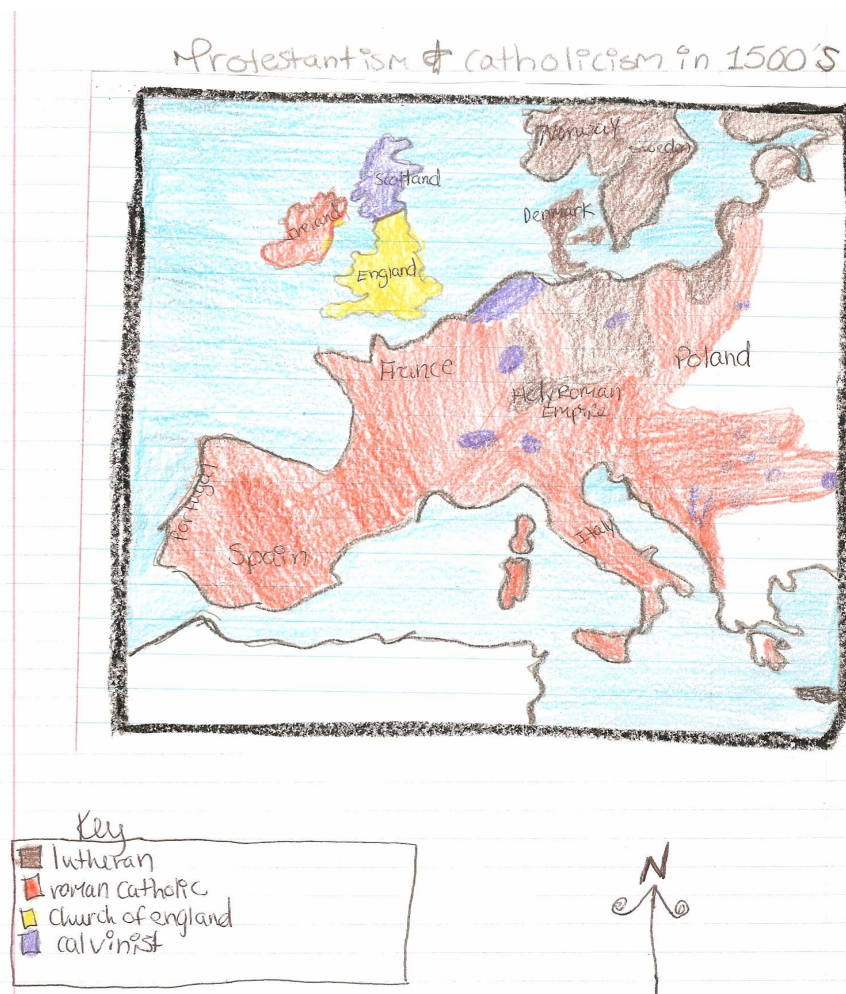 Protestantism & Catholicism in 1560's
Norway
Sweden
Scotland
Denmark
Ireland
England
France
Poland
Holy Roman
Empire
Portugal
Spain
Italy
Key
lutheran
roman catholic
church of england
calvinist
N